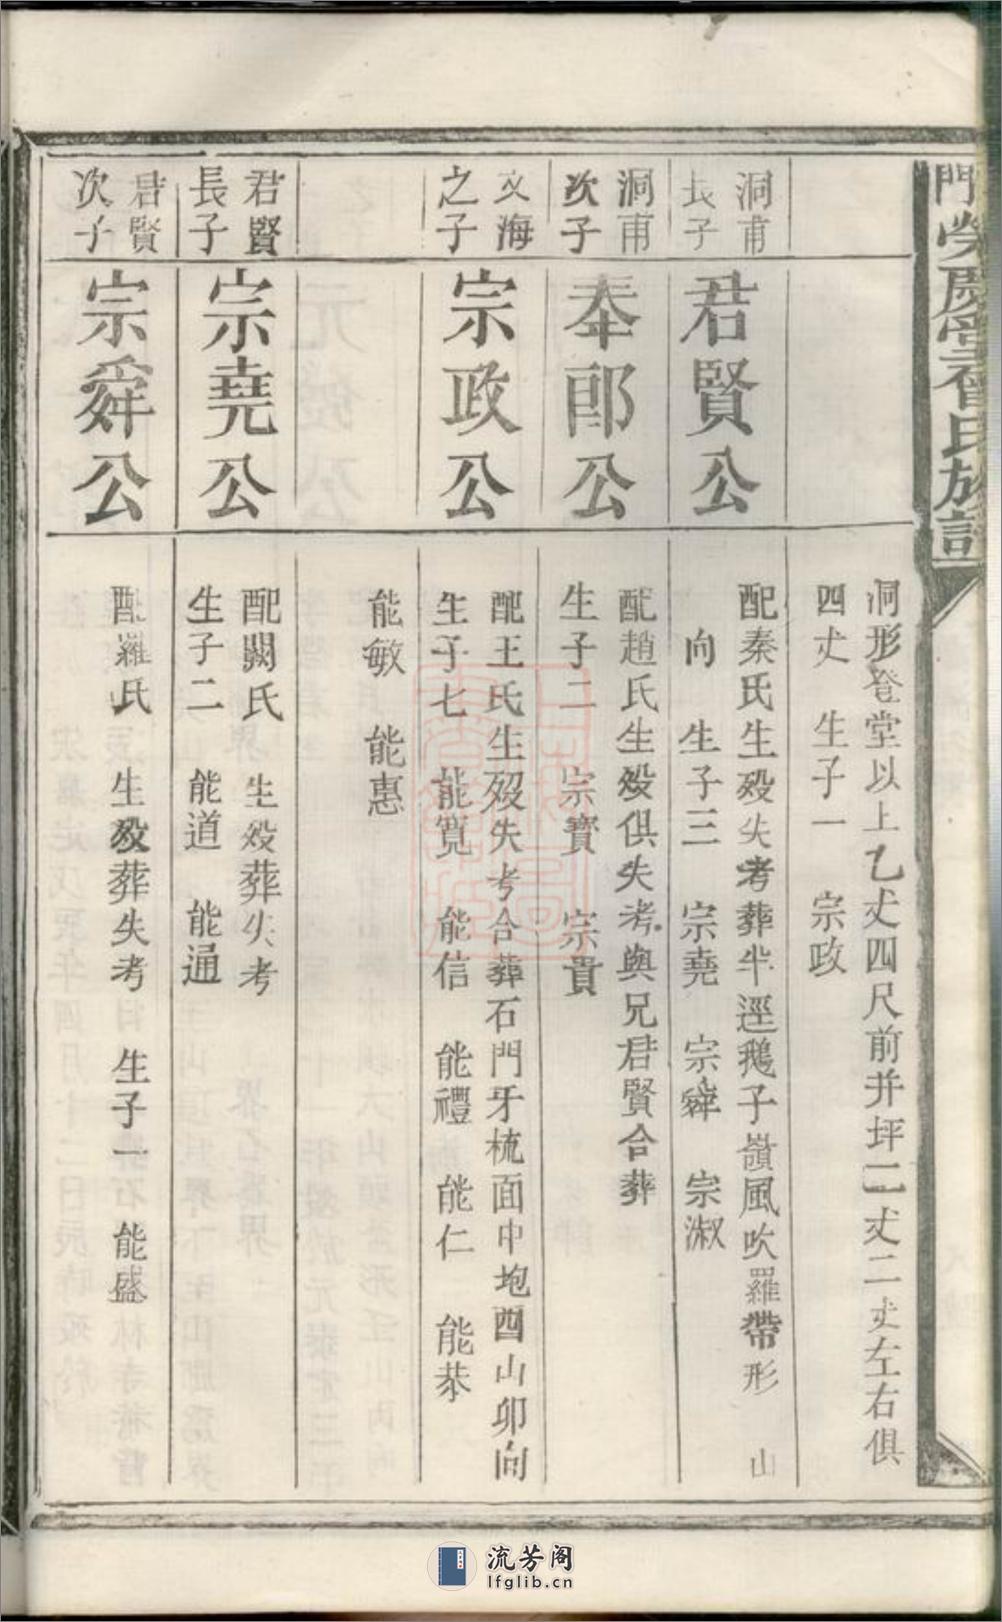 洞形登堂以上乙丈四尺前井坪二丈二丈左右俱
四丈　生子一　宗政
洞甫
長子
君賢公
配秦氏生殁失考葬半逕鵝子嶺風吹羅帶形　山
向　生子三　宗堯　宗舜　宗淑
洞甫
次子
奉郎公
配趙氏生殁俱失考與兄君賢合葬
生子二　宗寳　宗貴
文海
之子
宗政公
配王氏生殁失考合葬石門牙梳面中垉酉山卯向
生子七　能寬　能信　能禮　能仁　能恭
能敏　能惠
君賢
長子
宗堯公
配闕氏　生殁葬失考
生子二　能道　能通
君賢
次子
宗舜公
配羅氏　生殁葬失考　生子一　能盛
流芳阁
lfglib.cn